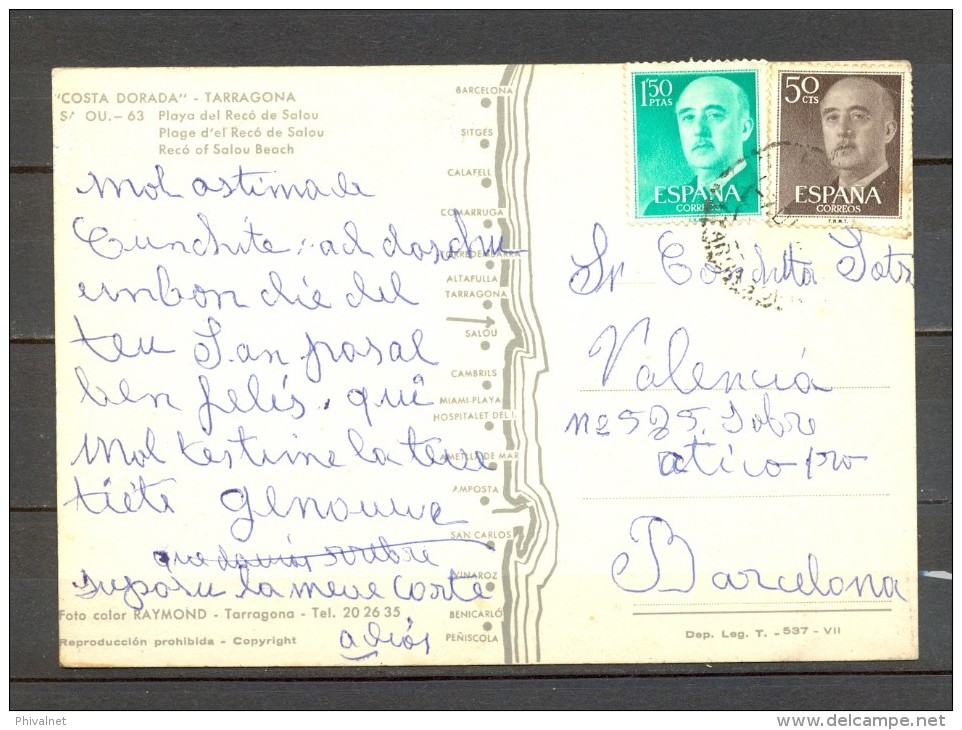 "COSTA DORADA" - TARRAGONA
S OU.-63 Playa del Recó de Salou
Plage d'el Recó de Salou
Recó of Salou Beach
Mol astimade
Cunchite: ad
un bon die del
teu San pasal
ben felés, que
mol testime la teve
tiéte Genouve
que davias rrebre
suposu la meve corte
adiós
Foto color RAYMOND - Tarragona - Tel. 20 26 35
Reproducción prohibida - Copyright
BARCELONA
SITGES
CALAFELL
COMARRUGA
TORREDEMBARRA
ALTAFULLA
TARRAGONA
SALOU
CAMBRILS
MIAMI-PLAYA
HOSPITALET DEL I.
AMETLLA DE MAR
AMPOSTA
SAN CARLOS
VINAROZ
BENICARLÓ
PEÑISCOLA
1'50
PTAS
ESPAÑA
CORREOS
50
CTS
ESPAÑA
CORREOS
F.N.M.T.
Sr Conchita
Valencia
nº 585. Sobre
atico pro
Barcelona
Dep. Leg. T. - 537 - VII
Phivalnet
www.delcampe.net